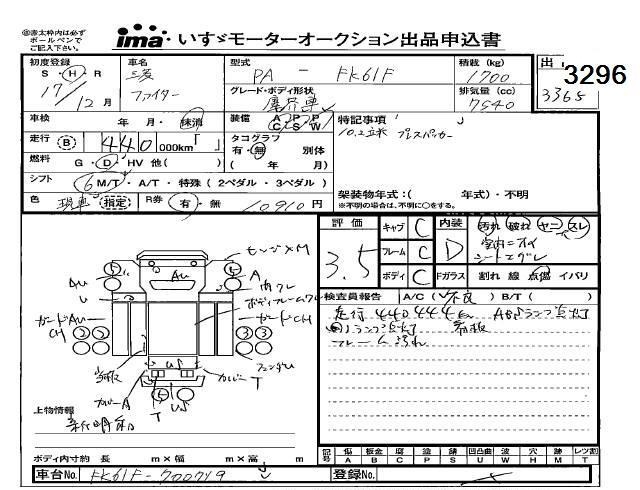 ㊟赤太枠内は必ず
ボールペンで
ご記入下さい。
ima・いすゞモーターオークション出品申込書
初度登録 車名 型式 積載(kg) 出
S・H・R 三菱 PA - FK61F 1700 3296
17年12月 ファイター グレード・ボディ形状 排気量(cc) 3365
塵芥車 7540
車検 年 月・抹消 装備 A・P・P C・S・W 特記事項
走行 B 440 000km「 」 タコグラフ 10.2立米 プレスパッカー
有・無 別体
燃料 G・D・HV 他( ) ( 年 月)
シフト 6 M/T・A/T・特殊(2ペダル・3ペダル) 架装物年式:( 年式)・不明
※不明の場合は、不明に○をする。
色 現車 指定 R券 有・無 10910円
評価 キャブ C 内装 汚れ 破れ ヤニ スレ
3.5 フレーム C D 室内ニオイ
シート
ボディ C Fガラス 割れ 線 点傷 イバリ
検査員報告 A/C(不良) B/T( )
走行 440444km ABSランプ点灯
ランプ点灯 看板
フレーム
Au A
Au
U
ボディフレーム
ガードAu ガードCH
CH
カバーA カバーT
T
上物情報
新明和
ボディ内寸約 長 m×幅 m×高 m
記号 傷 A 板金 B 腐 C 塗 P 錆 S 凹凸曲 U 波 W 穴 H 跡 M レツ割 T
車台No. FK61F-700719 登録No.